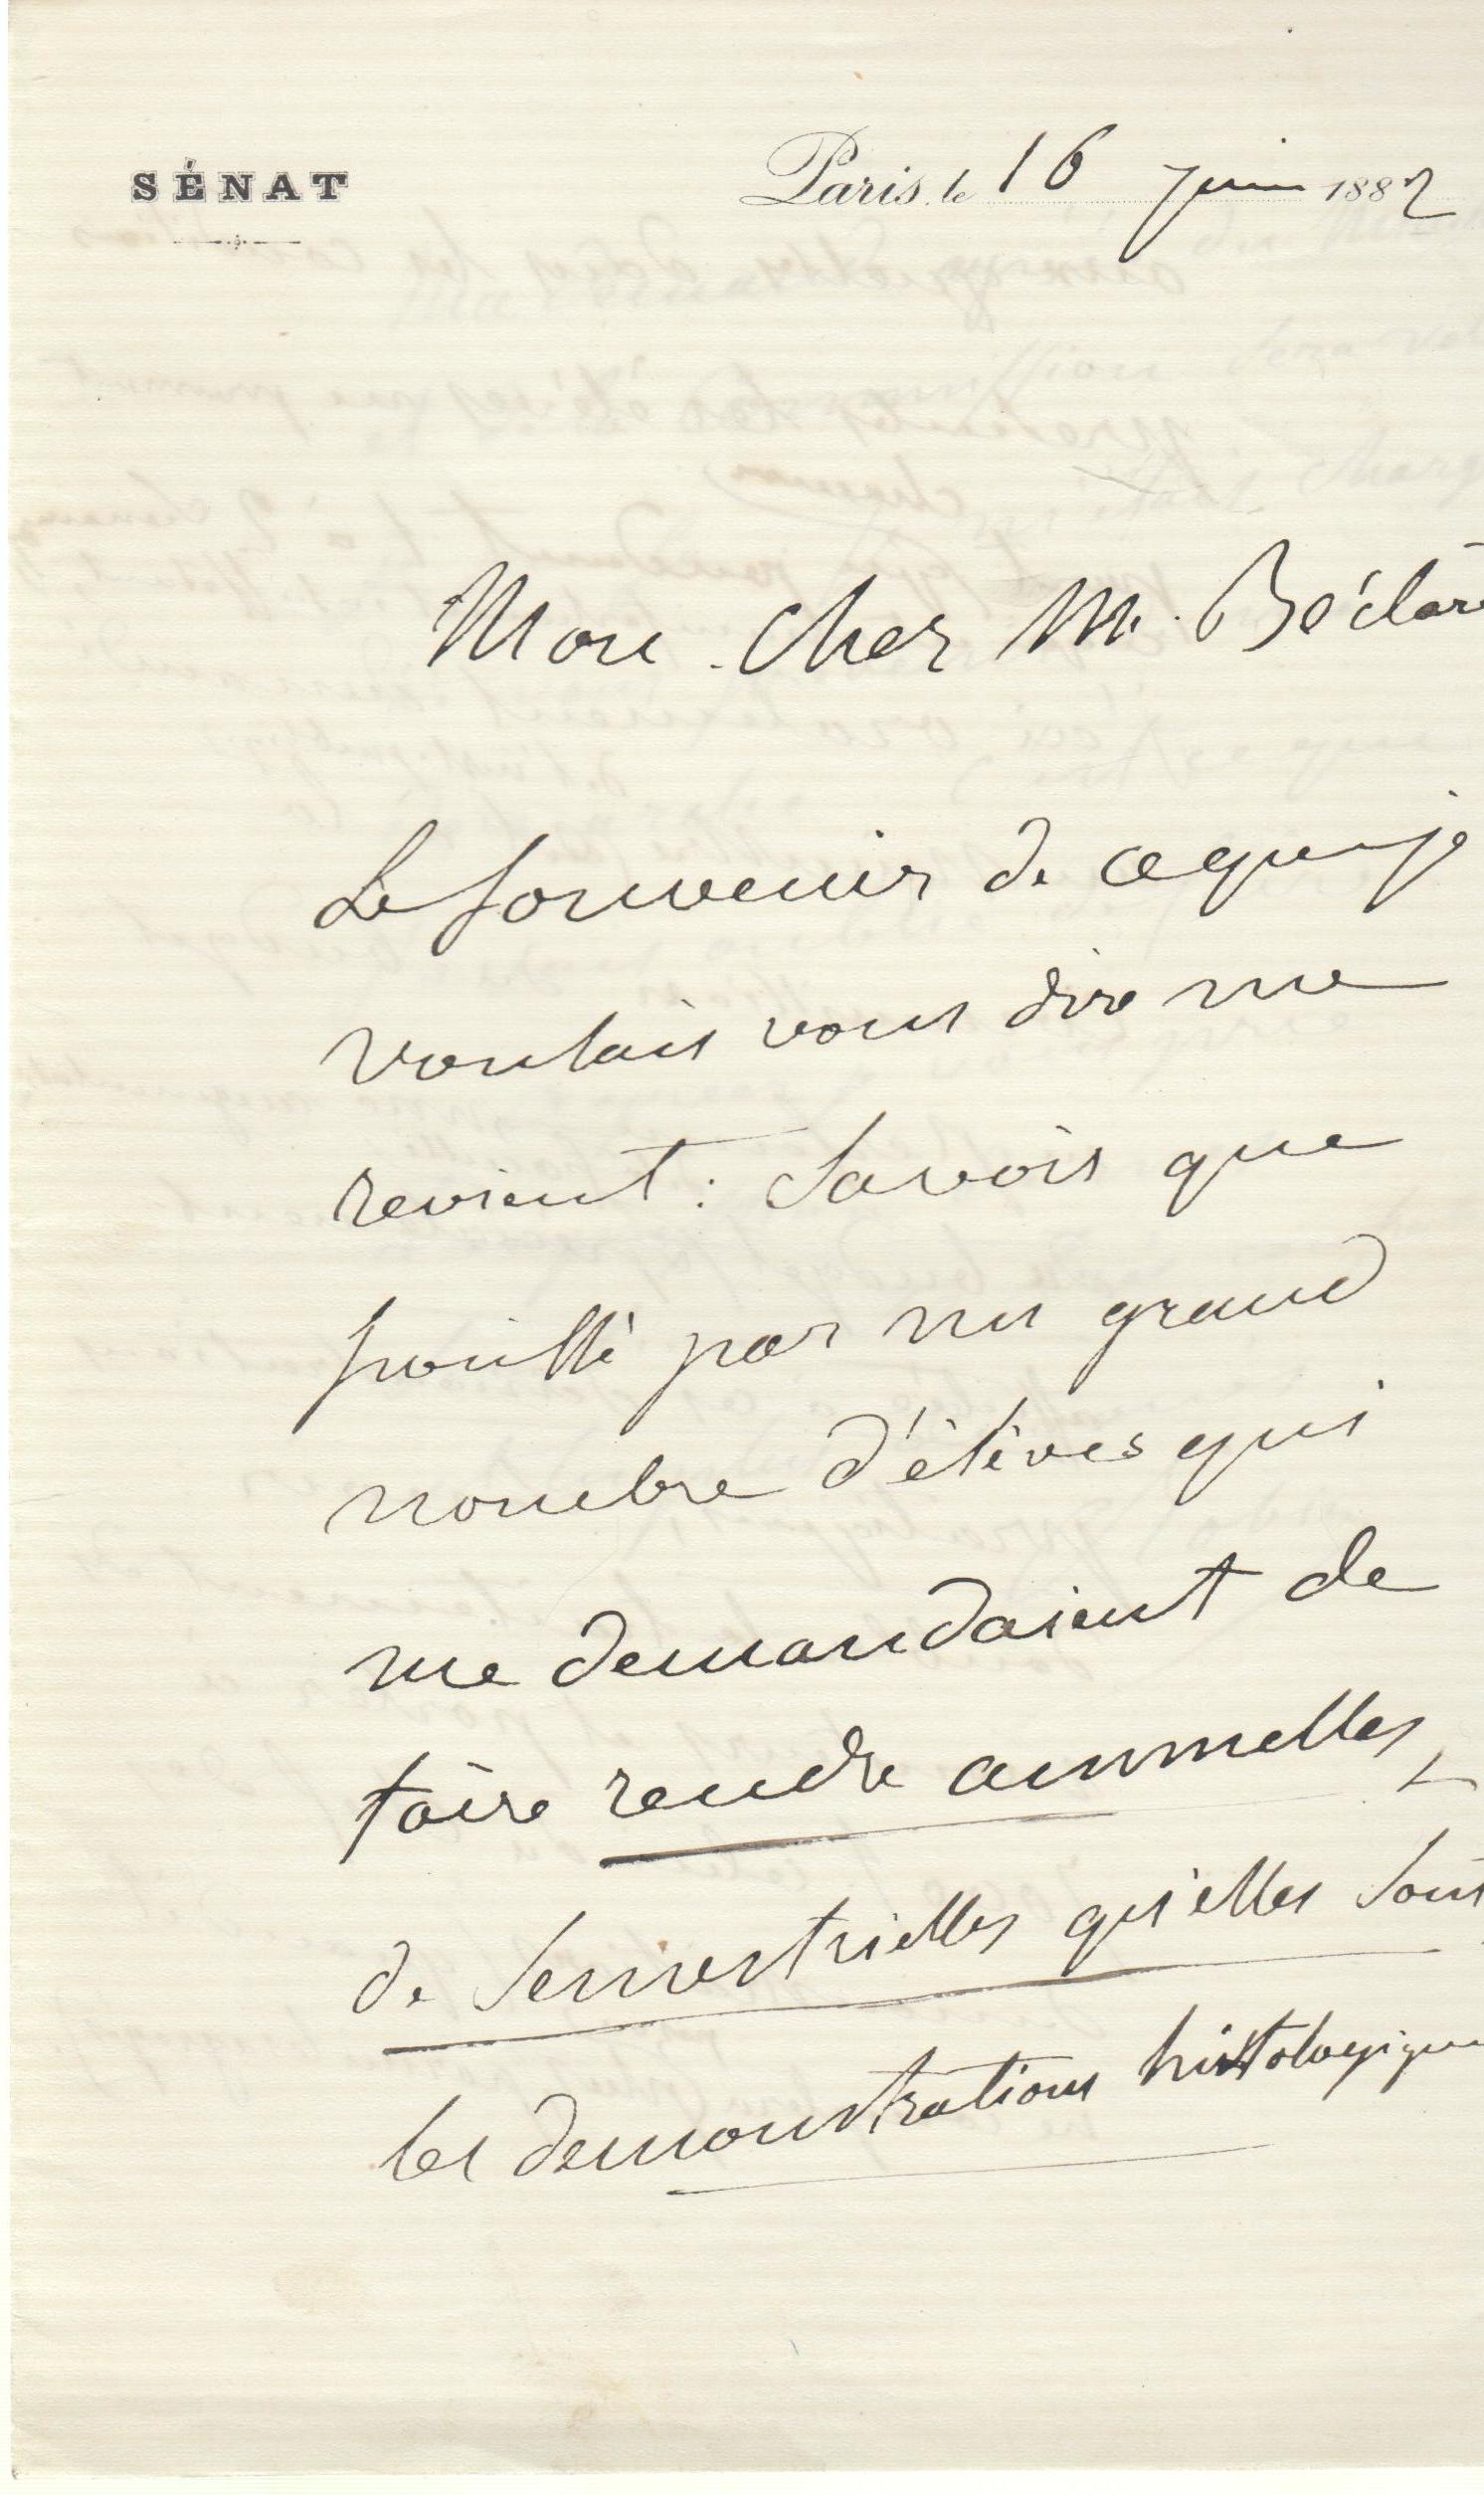 SÉNAT
Paris, le 16 juin 1882
Mon cher M. Béclar
Le souvenir de ce que je
voulais vous dire me
revient : Savoir que
par un grand
nombre d'élèves qui
me demandaient de
faire rendre annuelles,
de semestrielles qu'elles sont
les demonstrations histologiques